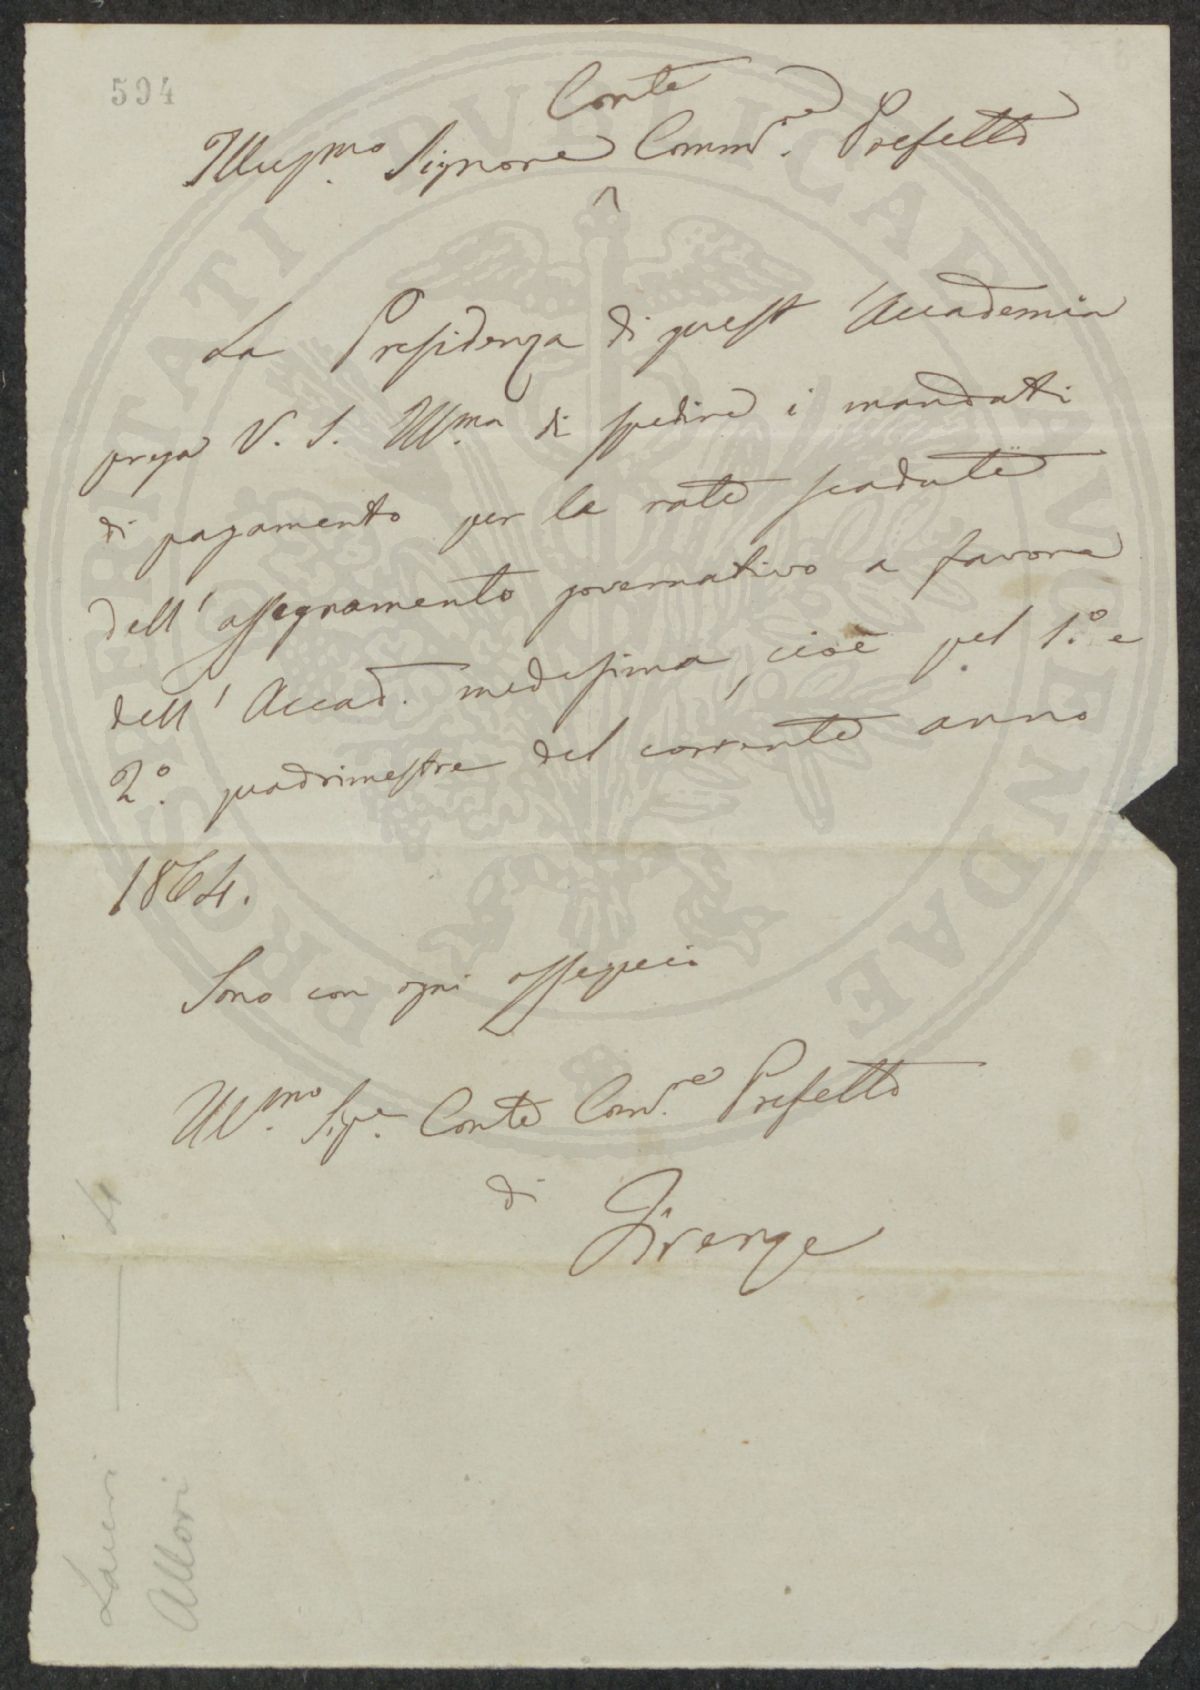 594
Conte
Illus.mo Signore Comm.re Prefetto
^
La Presidenza di quest'Accademia
prega V. S. Ill.ma di spedire i mandati
di pagamento per le rate scadute
dell'assegnamento governativo a favore
dell'Accad. medesima, cioè pel 1.º e
2.º quadrimestre del corrente anno
1864.
Sono con ogni ossequio
Ill.mo Sig.e Conte Com.re Prefetto
di Firenze
Lauri
Allori
4
PROSPERITATI PVBLICAE AVGENDAE